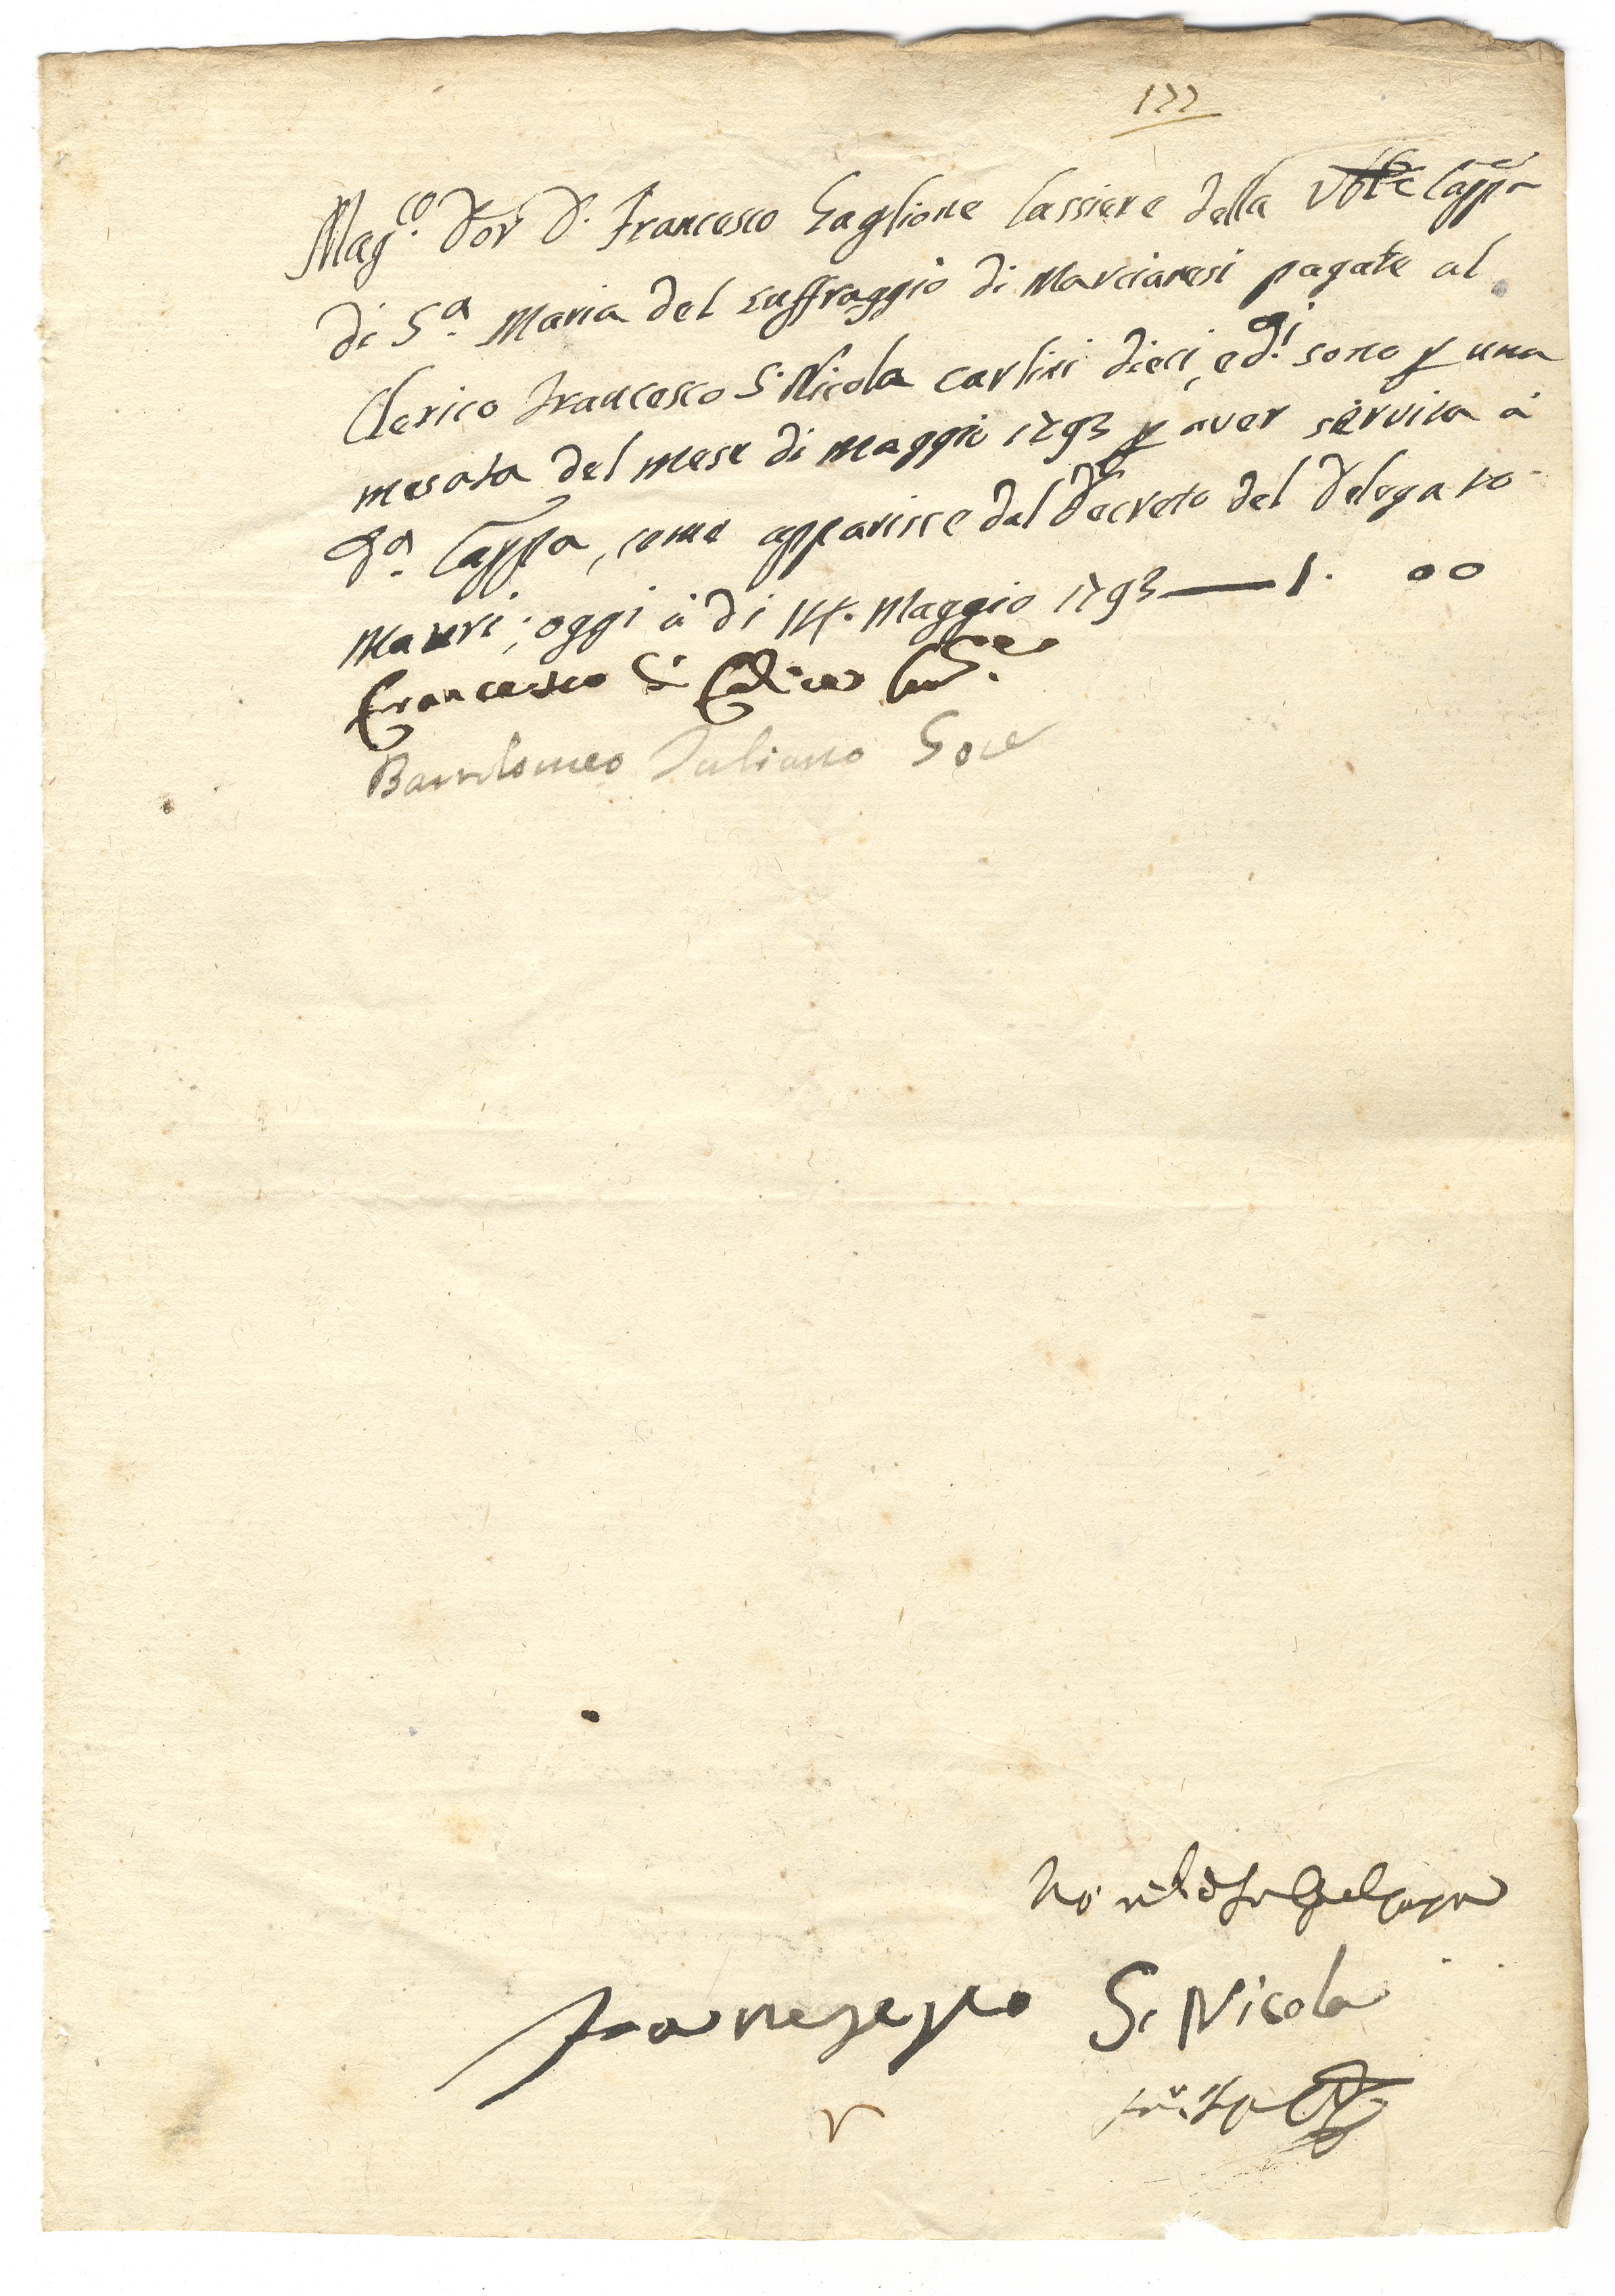 177
Mag.co Dor D. Francesco Gaglione Cassiere della Vble Capp.a
di S.a Maria del suffraggio di Marcianesi pagate al
Clerico Francesco S. Nicola carlini dieci, e d.i sono p una
mesata del mese di Maggio 1793 p aver servita à
d.a Cappa, come apparisce dal Decreto del Delegato
Mauri; oggi à di 14. Maggio 1793 — 1. 00
Francesco
Bartolomeo Iuliano
S. Nicola